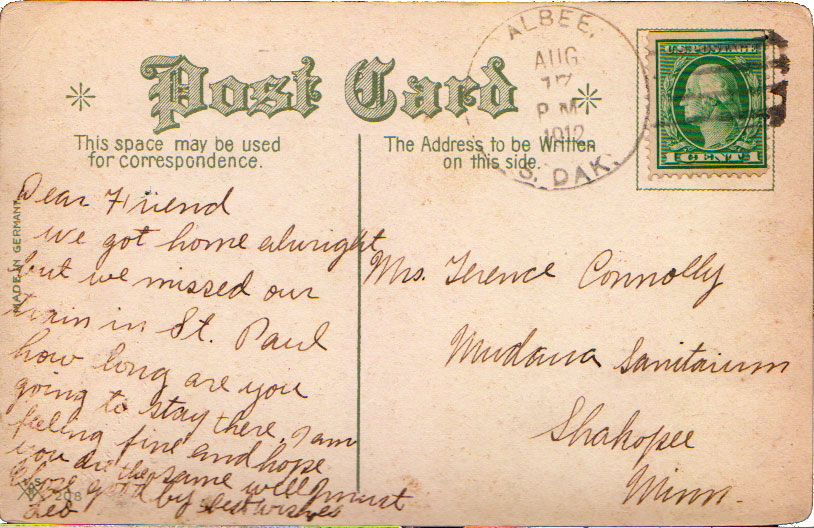 Post Card
This space may be used
for correspondence.
The Address to be Written
on this side.
ALBEE,
AUG
17
P M
1912
S. DAK.
U.S. POSTAGE
1 CENT 1
MADE IN GERMANY
Dear Friend
we got home alwright
but we missed our
train in St. Paul
how long are you
going to stay there. I am
feeling fine and hope
you are the same well I must
close good by best wishes
Leo
208
Mrs. Terence Connolly
Mudana Sanitarium
Shakopee
Minn.